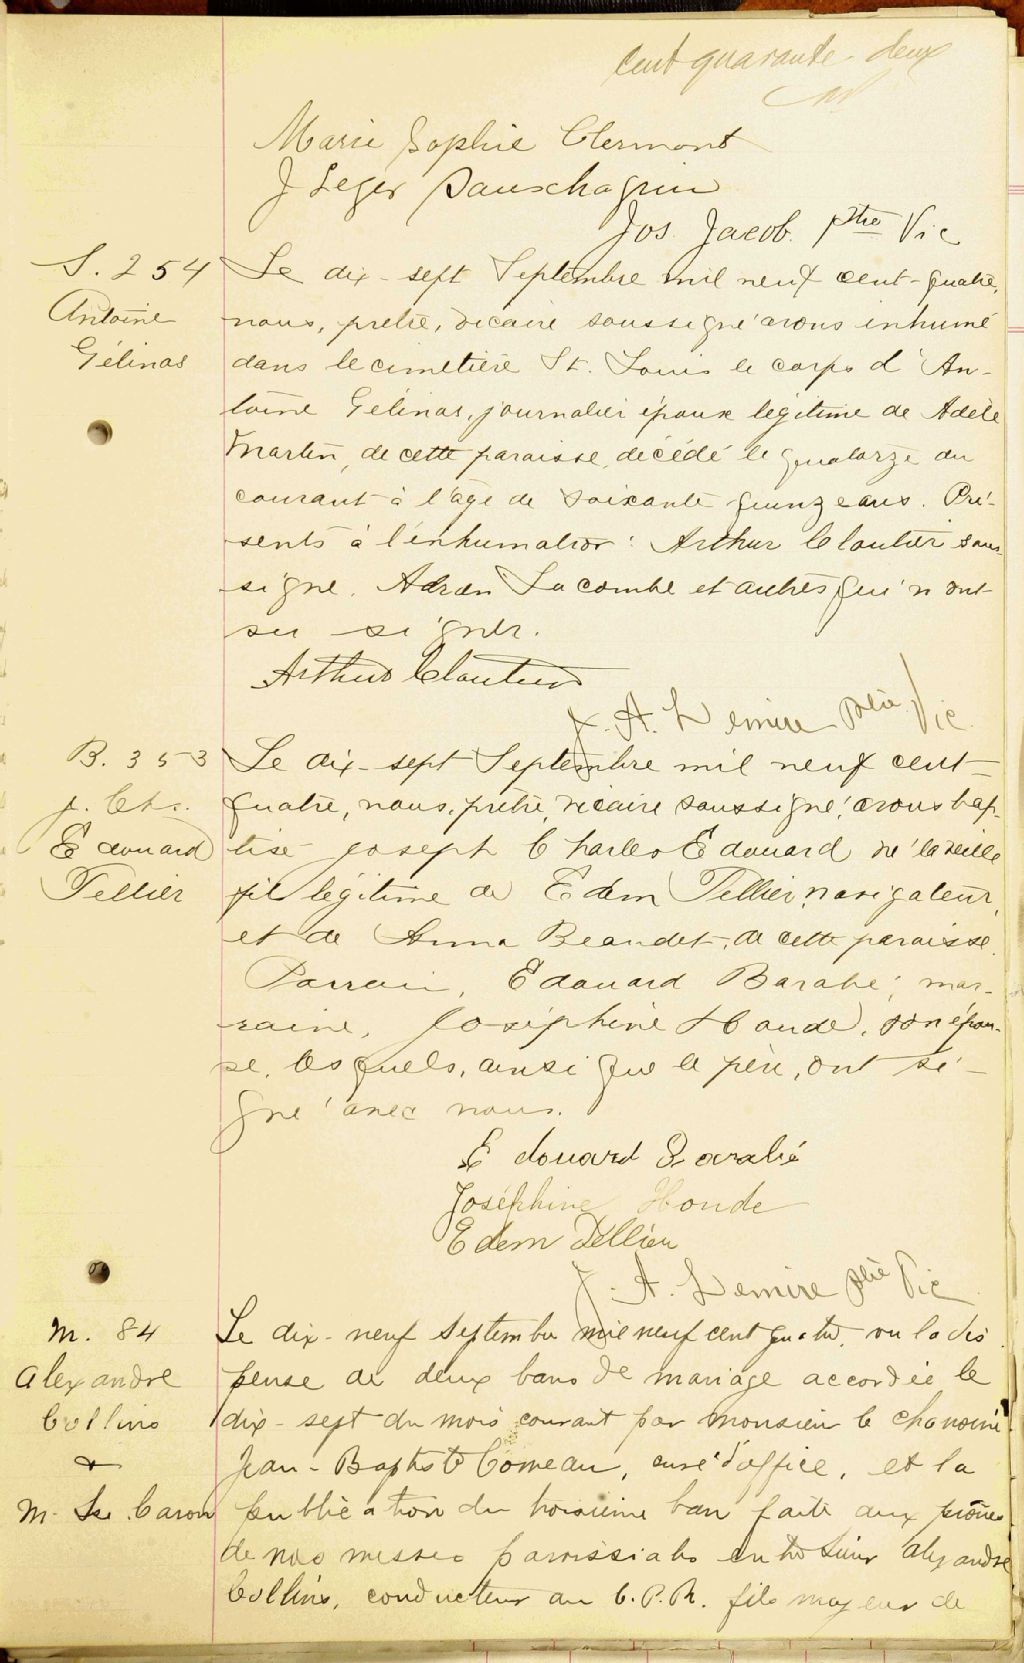 cent quarante-deux
Marie Sophie Clermont
J Leger Sanschagrin
Jos. Jacob. ptre Vic
S. 254
Antoine
Gélinas
Le dix-sept Septembre mil neuf cent-quatre,
nous, prêtre, vicaire soussigné avons inhumé
dans le cimetière St. Louis le corps d'An-
toine Gélinas, journalier époux légitime de Adèle
Martin, de cette paroisse, décédé le quatorze du
courant à l'âge de soixante quinze ans. Pré-
sents à l'inhumation: Arthur Cloutier sous-
signé. Lacombe et autres qui n'ont
su signer.
Arthur Cloutier
J. A. Lemire ptre Vic
B. 353
J. Chs.
Edouard
Tellier
Le dix-sept Septembre mil neuf cent-
quatre, nous, prêtre, vicaire soussigné, avons bap-
tisé Joseph Charles Edouard né la veille
fil légitime de Edem Tellier, navigateur,
et de Anna Beaudet, de cette paroisse.
Parrain, Edouard Barabé; mar-
raine, Joséphine Houde, son épou-
se, lesquels, ainsi que le père, ont si-
gné avec nous.
Edouard Barabé
Joséphine Houde
Edem Tellier
J. A. Lemire ptre Vic
M. 84
Alexandre
Collins
&
M. Caron
Le dix-neuf septembre mil neuf cent quatre, vu la dis
pense de deux bans de mariage accordée le
dix-sept du mois courant par monsieur le chanoine
Jean-Baptiste Comeau, curé d'office, et la
publication du troisième ban faite aux prônes
de nos messes paroissiales entre Sieur Alexandre
Collins, conducteur au C.P.R. fils majeur de